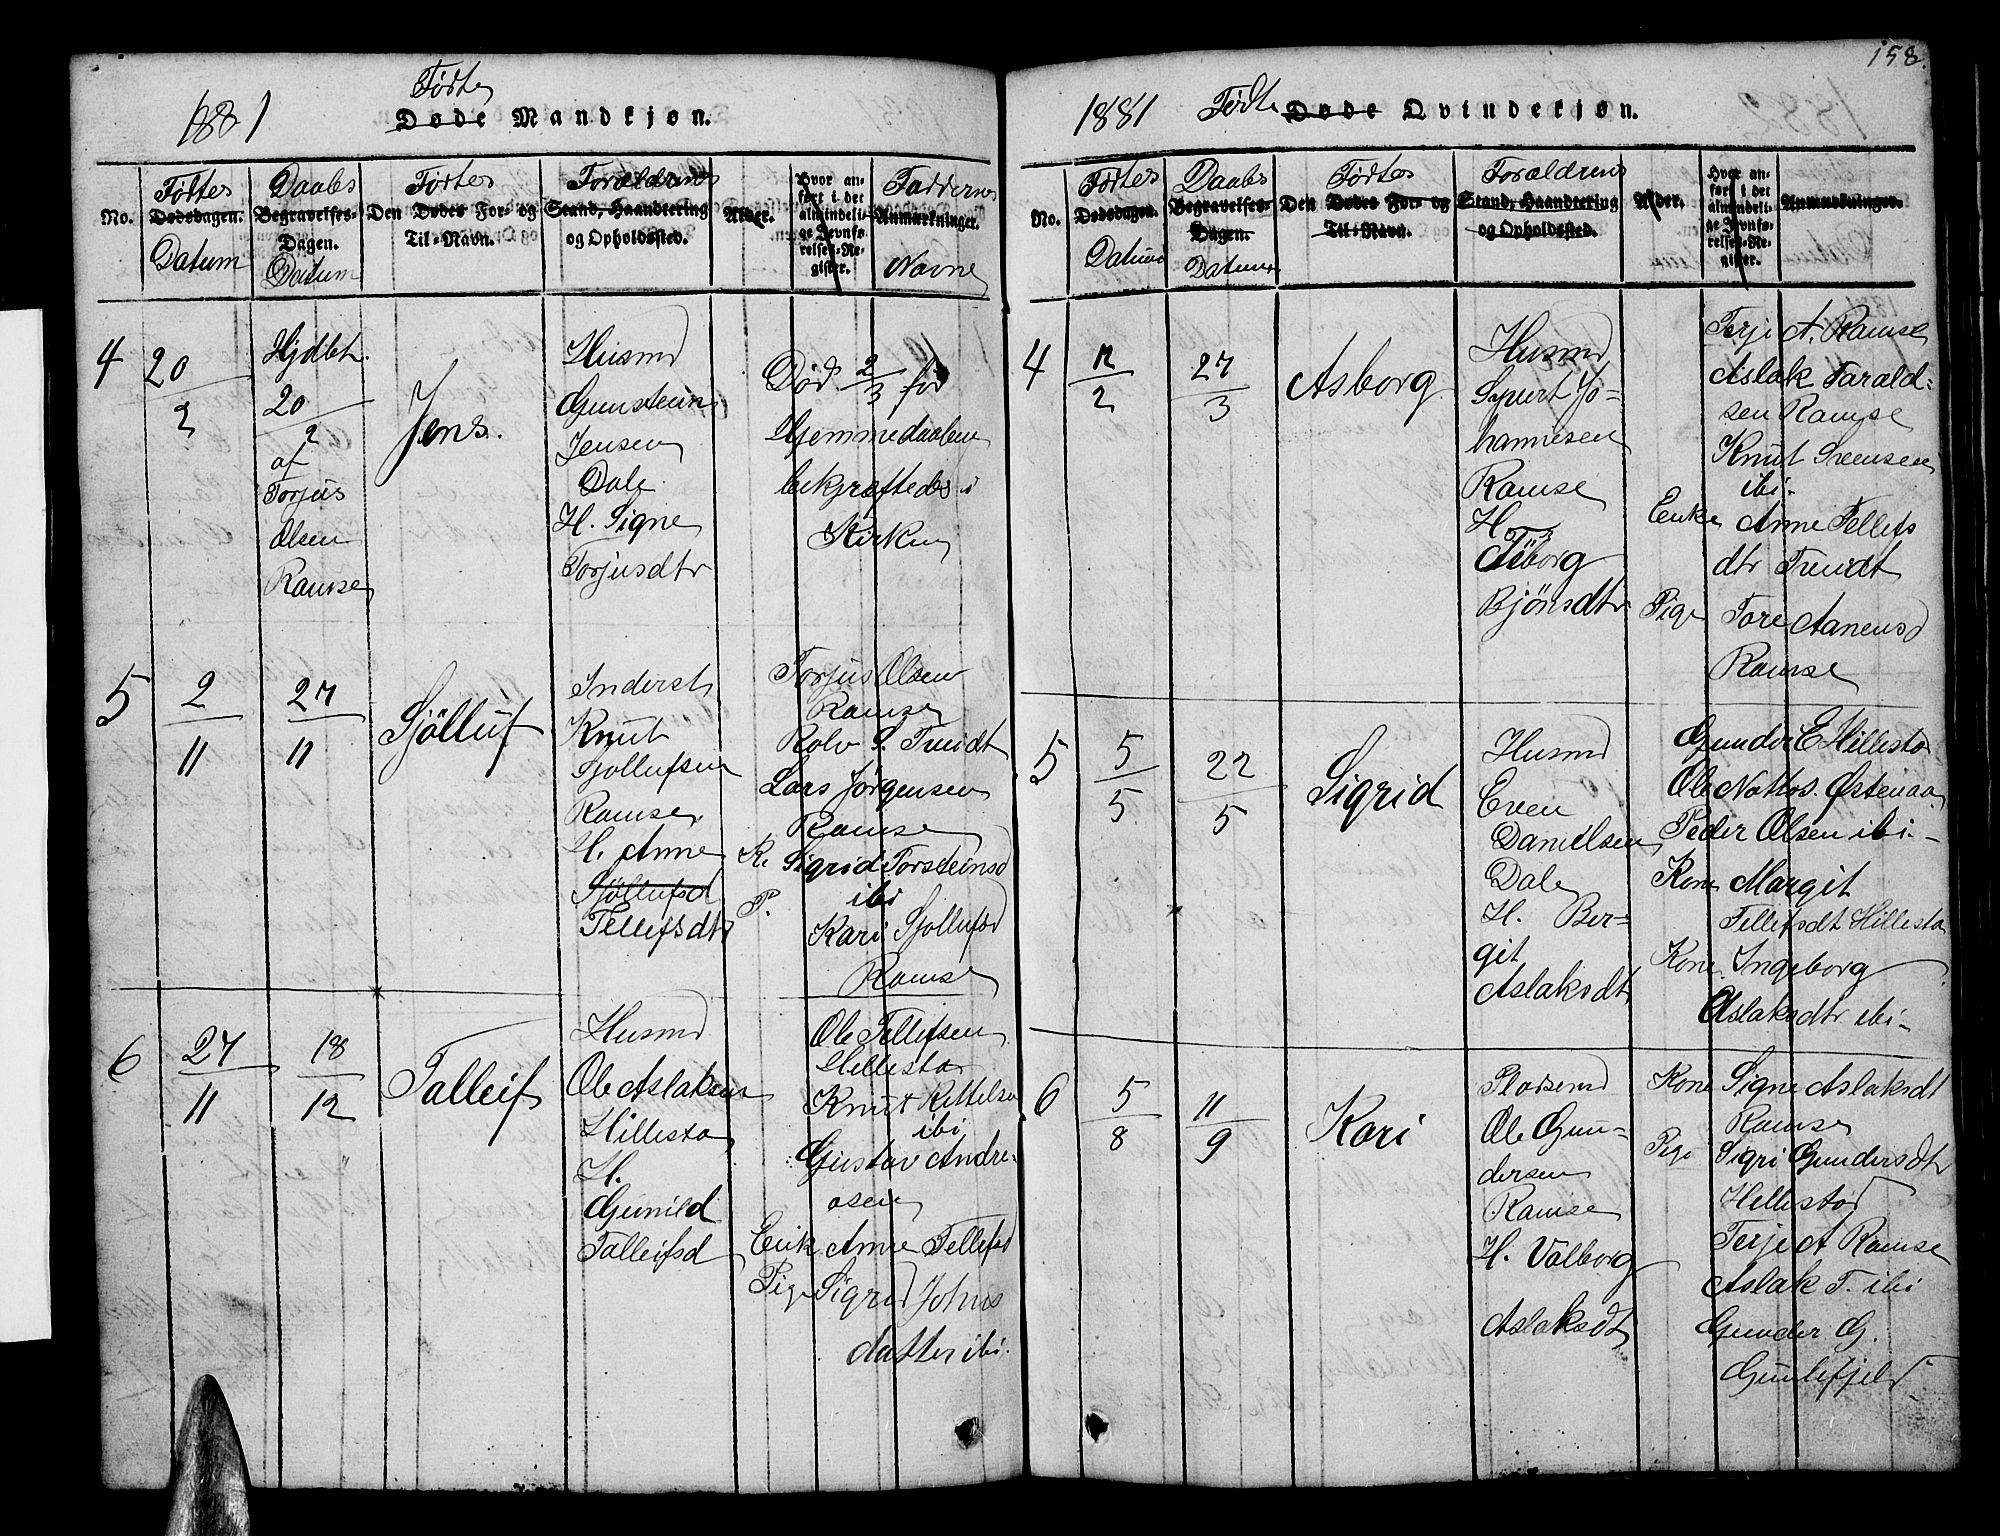 158.
1881
Fødte
Døde Mandkjøn.
No.
Fødtes
Dødsdagen.
Datum
Daabs
Begravelses-
Dagen.
Datum
Fødtes
Den Dødes For- og
Til-Navn.
Forældrenes
Stand, Haandtering
og Opholdssted.
Alder.
Hvor an-
ført i det
almindeli-
ge Jevnfø-
relses-Re-
gister.
Faddernes
Anmærkninger.
Navne
4
20
2
Hjdbt.
20
2
af
Torjus
Olsen
Ramse
Jens.
Husmd
Gunstein
Jensen
Dale
H. Signe
Torjusdtr
Død 2/3 før
Hjemmedaaben
bekræftedes i
Kirken
5
2
11
27
11
Sjølluf
Inderst
Knut
Sjøllufsen
Ramse
H. Anne
Sjøllufsd
Tellefsdtr
Torjus Olsen
Ramse
Rolv S. Treidt
Lars Jørgensen
Ramse
K. Sigrid Torsteinsd
P. ibi
Kari Sjøllufsd
Ramse
6
27
11
18
12
Talleif
Husmd
Ole Aslaksen
Hillesta
H.
Gunild
Talleifsd
Ole Tellefsen
Hillestad
Knut Kittelsen
ibi
Gustav Andre-
asen
Enk Anne Tellefsd
Pige Sigrid Johns
datter ibi.
1881
Fødte
Døde Qvindekjøn.
No.
Fødtes
Dødsdagen.
Datum
Daabs
Begravelses-
Dagen.
Datum
Fødtes
Den Dødes For- og
Til-Navn.
Forældrens
Stand, Haandtering
og Opholdssted.
Alder.
Hvor an-
ført i det
almindeli-
ge Jevnfø-
relses-Re-
gister.
Anmærkninger.
4
12
2
27
3
Asborg
Husmd
Sjurt Jo-
hannesen
Ramse
H.
Tòborg
Bjönsdtr
Terje A. Ramse
Aslak Tarald-
sen Ramse
Knut Svensen
ibi.
Enke Anne Tellefs
dtr Treidt
Pige Tore Aanensd
Ramse
5
5
5
22
5
Sigrid
Husmd
Even
Danielsen
Dale
H. Ber-
git
Aslaksdtr
Gunder E Hillesta
Ole Nottos. Østenaa
Peder Olsen ibi-
Kone Margit
Tellefsdt Hillesta
Kone Ingeborg
Aslaksdtr ibi-
6
5
8
11
9
Kari
Pladsemd
Ole Gun-
dersen
Ramse
H. Valborg
Aslaksdt
Kone Signe Aslaksdt
Ramse
Pige Sigri Gundersdt
Hillestad
Terje A Ramse
Aslak T. ibi
Gunder G.
Gunlefjeld